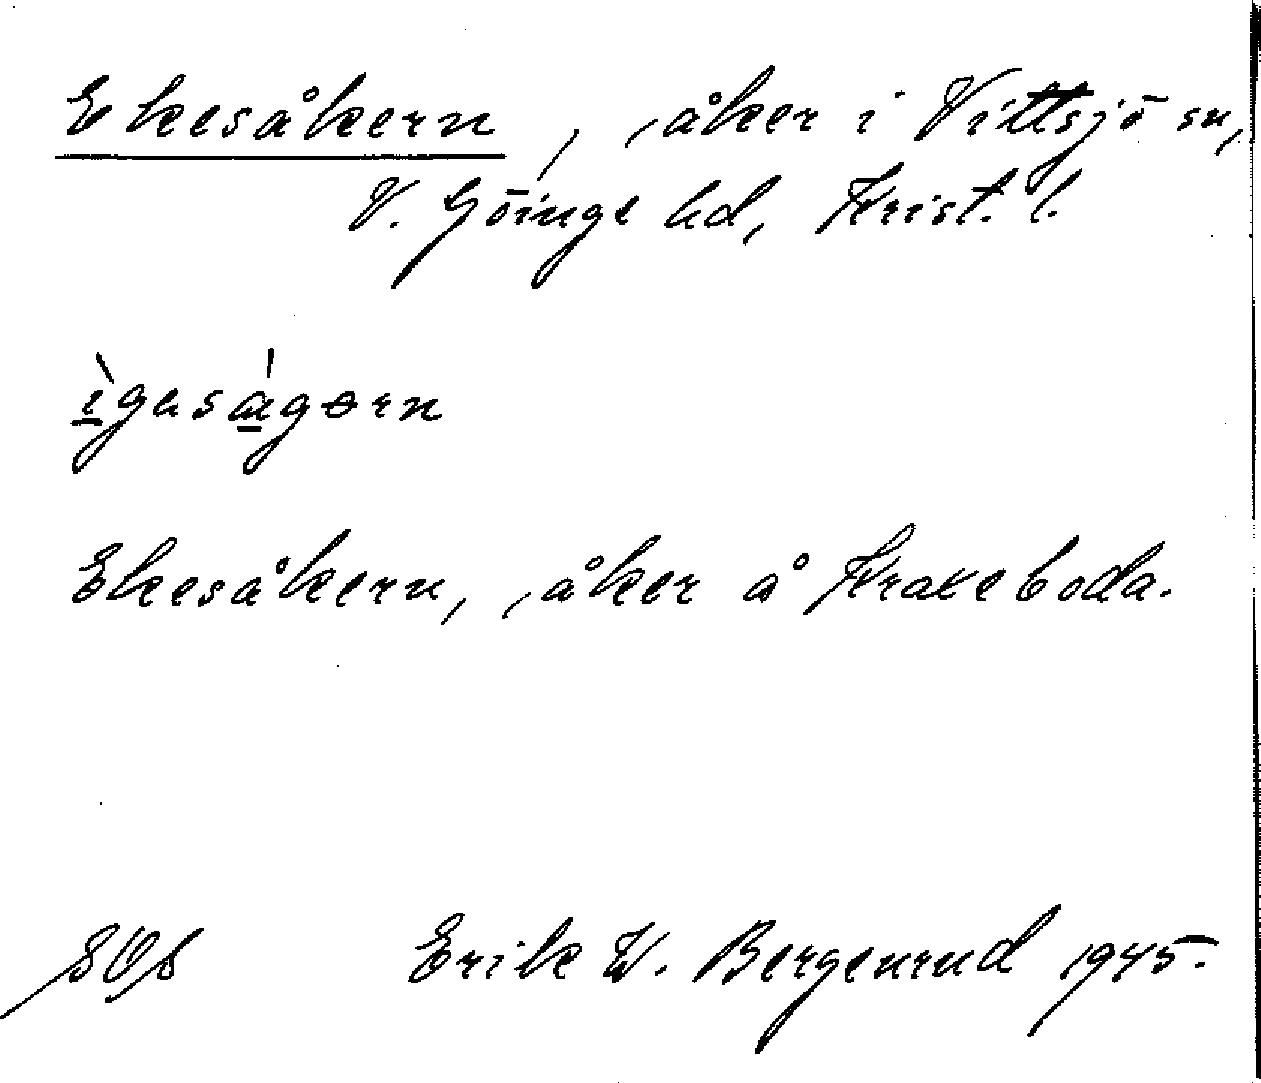 Ekesåkern, , åker i Vittsjö sn,
V. Göinge hd, Krist. l.
ìgaságərn
Ekesåkern, , åker å Krakeboda.
Erik W. Bergenrud 1945.